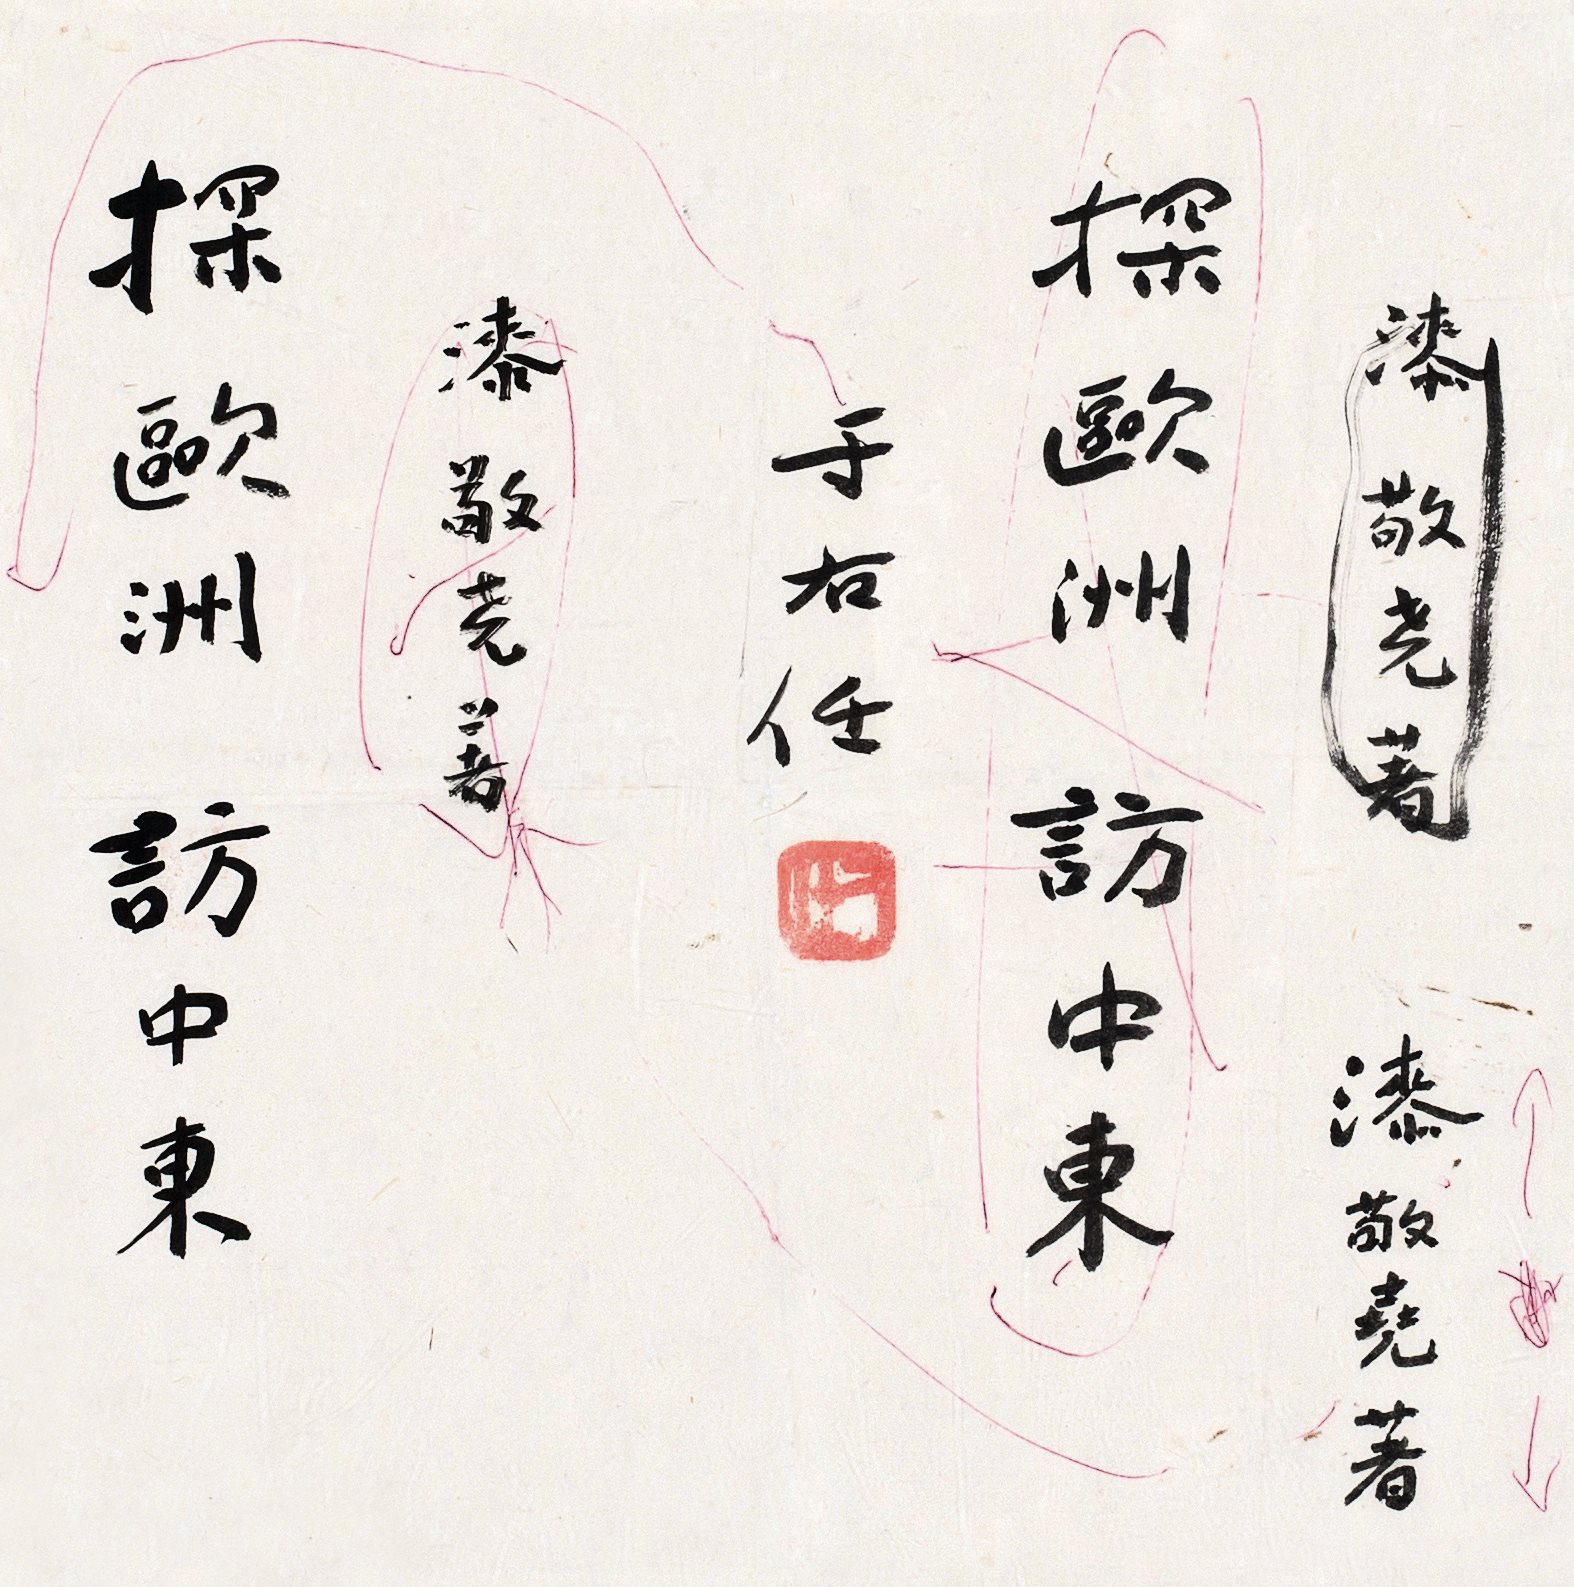 漆敬尧著
漆敬堯著
探歐洲訪中東
于右任
漆敬尧著
探歐洲訪中東